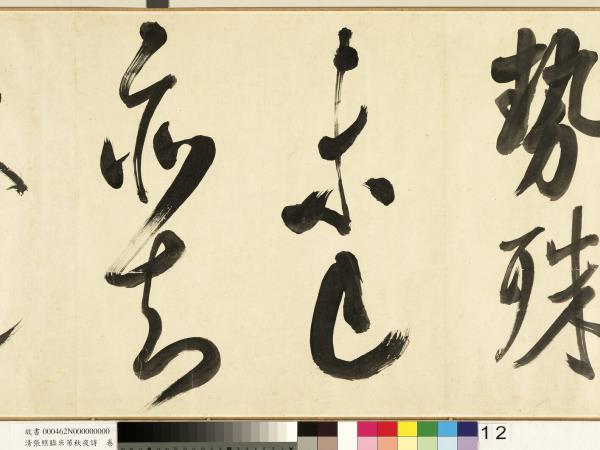 勢殊
未已
亦知
故書 000462N000000000
清張照臨米芾秋夜詩 卷
12